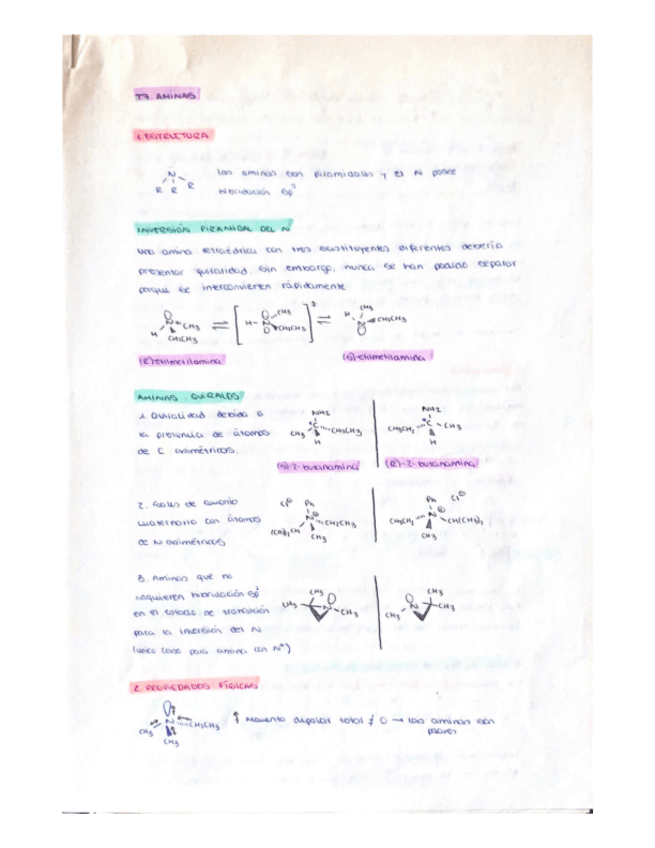 T7. AMINAS
1. ESTRUCTURA
N
R R R
las aminas son piramidales y el N posee
hibridación sp³
INVERSIÓN PIRAMIDAL DEL N
Una amina tetraédrica con tres sustituyentes diferentes debería
presentar quiralidad, sin embargo, nunca se han podido separar
porque se interconvierten rápidamente.
H N CH₃ CH₂CH₃ ⇌ [ H-N CH₃ CH₂CH₃ ]‡ ⇌ H CH₃ N CH₂CH₃
(R)-etilmetilamina (S)-etilmetilamina
AMINAS QUIRALES
1. Quiralidad debida a
la presencia de átomos
de C asimétricos.
NH₂ CH₃ C CH₂CH₃ H
NH₂ CH₃CH₂ C CH₃ H
(S)-2-butanamina (R)-2-butanamina
2. Sales de amonio
cuaternario con átomos
de N asimétricos
Cl⊖ Ph N⊕ CH₂CH₃ (CH₃)₂CH CH₃
Ph Cl⊖ CH₃CH₂ N⊕ CH(CH₃)₂ CH₃
3. Aminas que no
adquieren hibridación sp²
en el estado de transición
para la inversión del N
(único caso para amina con N*)
CH₃ CH₃ N CH₃
CH₃ N CH₃ CH₃
2. PROPIEDADES FÍSICAS
CH₃ N CH₂CH₃ CH₃
↑ Momento dipolar total ≠ 0 → las aminas son
polares